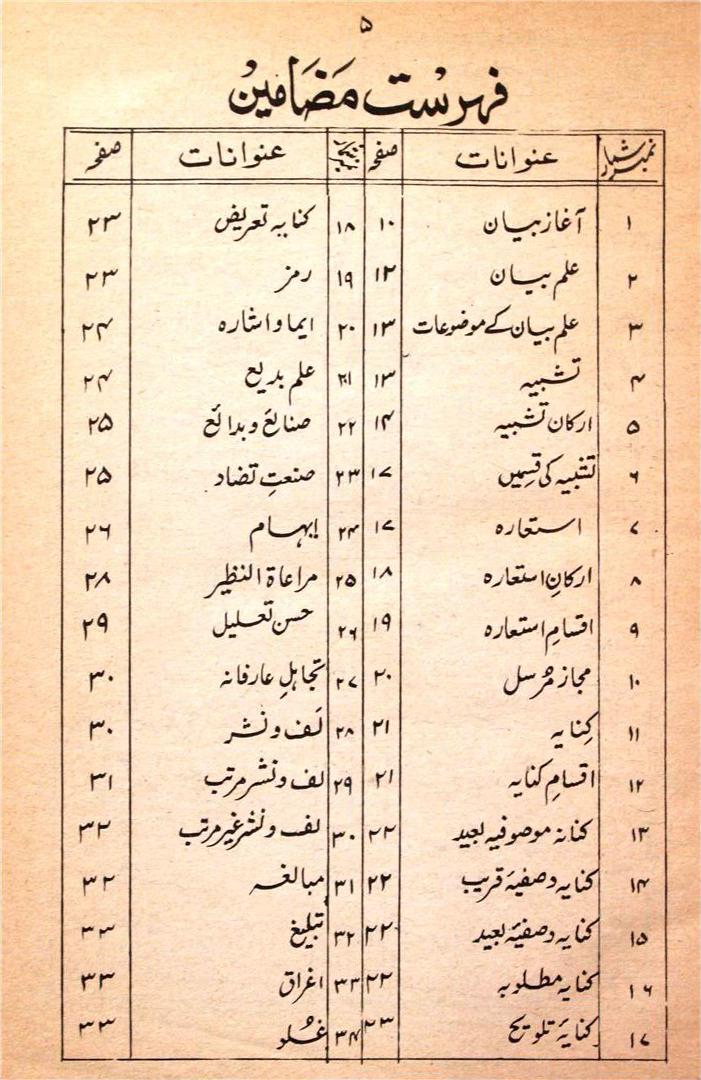 ۵
فہرست مضامین
نمبر شمار عنوانات صفحہ نمبر شمار عنوانات صفحہ
۱ آغاز بیان ۱۰ ۱۸ کنایہ تعریض ۲۳
۲ علم بیان ۱۲ ۱۹ رمز ۲۳
۳ علم بیان کے موضوعات ۱۳ ۲۰ ایما و اشارہ ۲۴
۴ تشبیہ ۱۳ ۲۱ علم بدیع ۲۴
۵ ارکان تشبیہ ۱۴ ۲۲ صنائع و بدائع ۲۵
۶ تشبیہ کی قسمیں ۱۷ ۲۳ صنعتِ تضاد ۲۵
۷ استعارہ ۱۷ ۲۴ ایہام ۲۶
۸ ارکانِ استعارہ ۱۸ ۲۵ مراعاۃ النظیر ۲۸
۹ اقسامِ استعارہ ۱۹ ۲۶ حسن تعلیل ۲۹
۱۰ مجاز مُرسل ۲۰ ۲۷ تجاہلِ عارفانہ ۳۰
۱۱ کِنایہ ۲۱ ۲۸ لَف و نشر ۳۰
۱۲ اقسامِ کنایہ ۲۱ ۲۹ لف و نشر مرتب ۳۱
۱۳ کنایہ موصوفیہ بعید ۲۲ ۳۰ لف و نشر غیر مرتب ۳۲
۱۴ کنایہ وصفیۂ قریب ۲۲ ۳۱ مبالغہ ۳۲
۱۵ کنایہ وصفیۂ بعید ۲۲ ۳۲ تبلیغ ۳۳
۱۶ کنایہ مطلوبہ ۲۲ ۳۳ اغراق ۳۳
۱۷ کنایۂ تلویح ۲۳ ۳۴ غُلو ۳۳